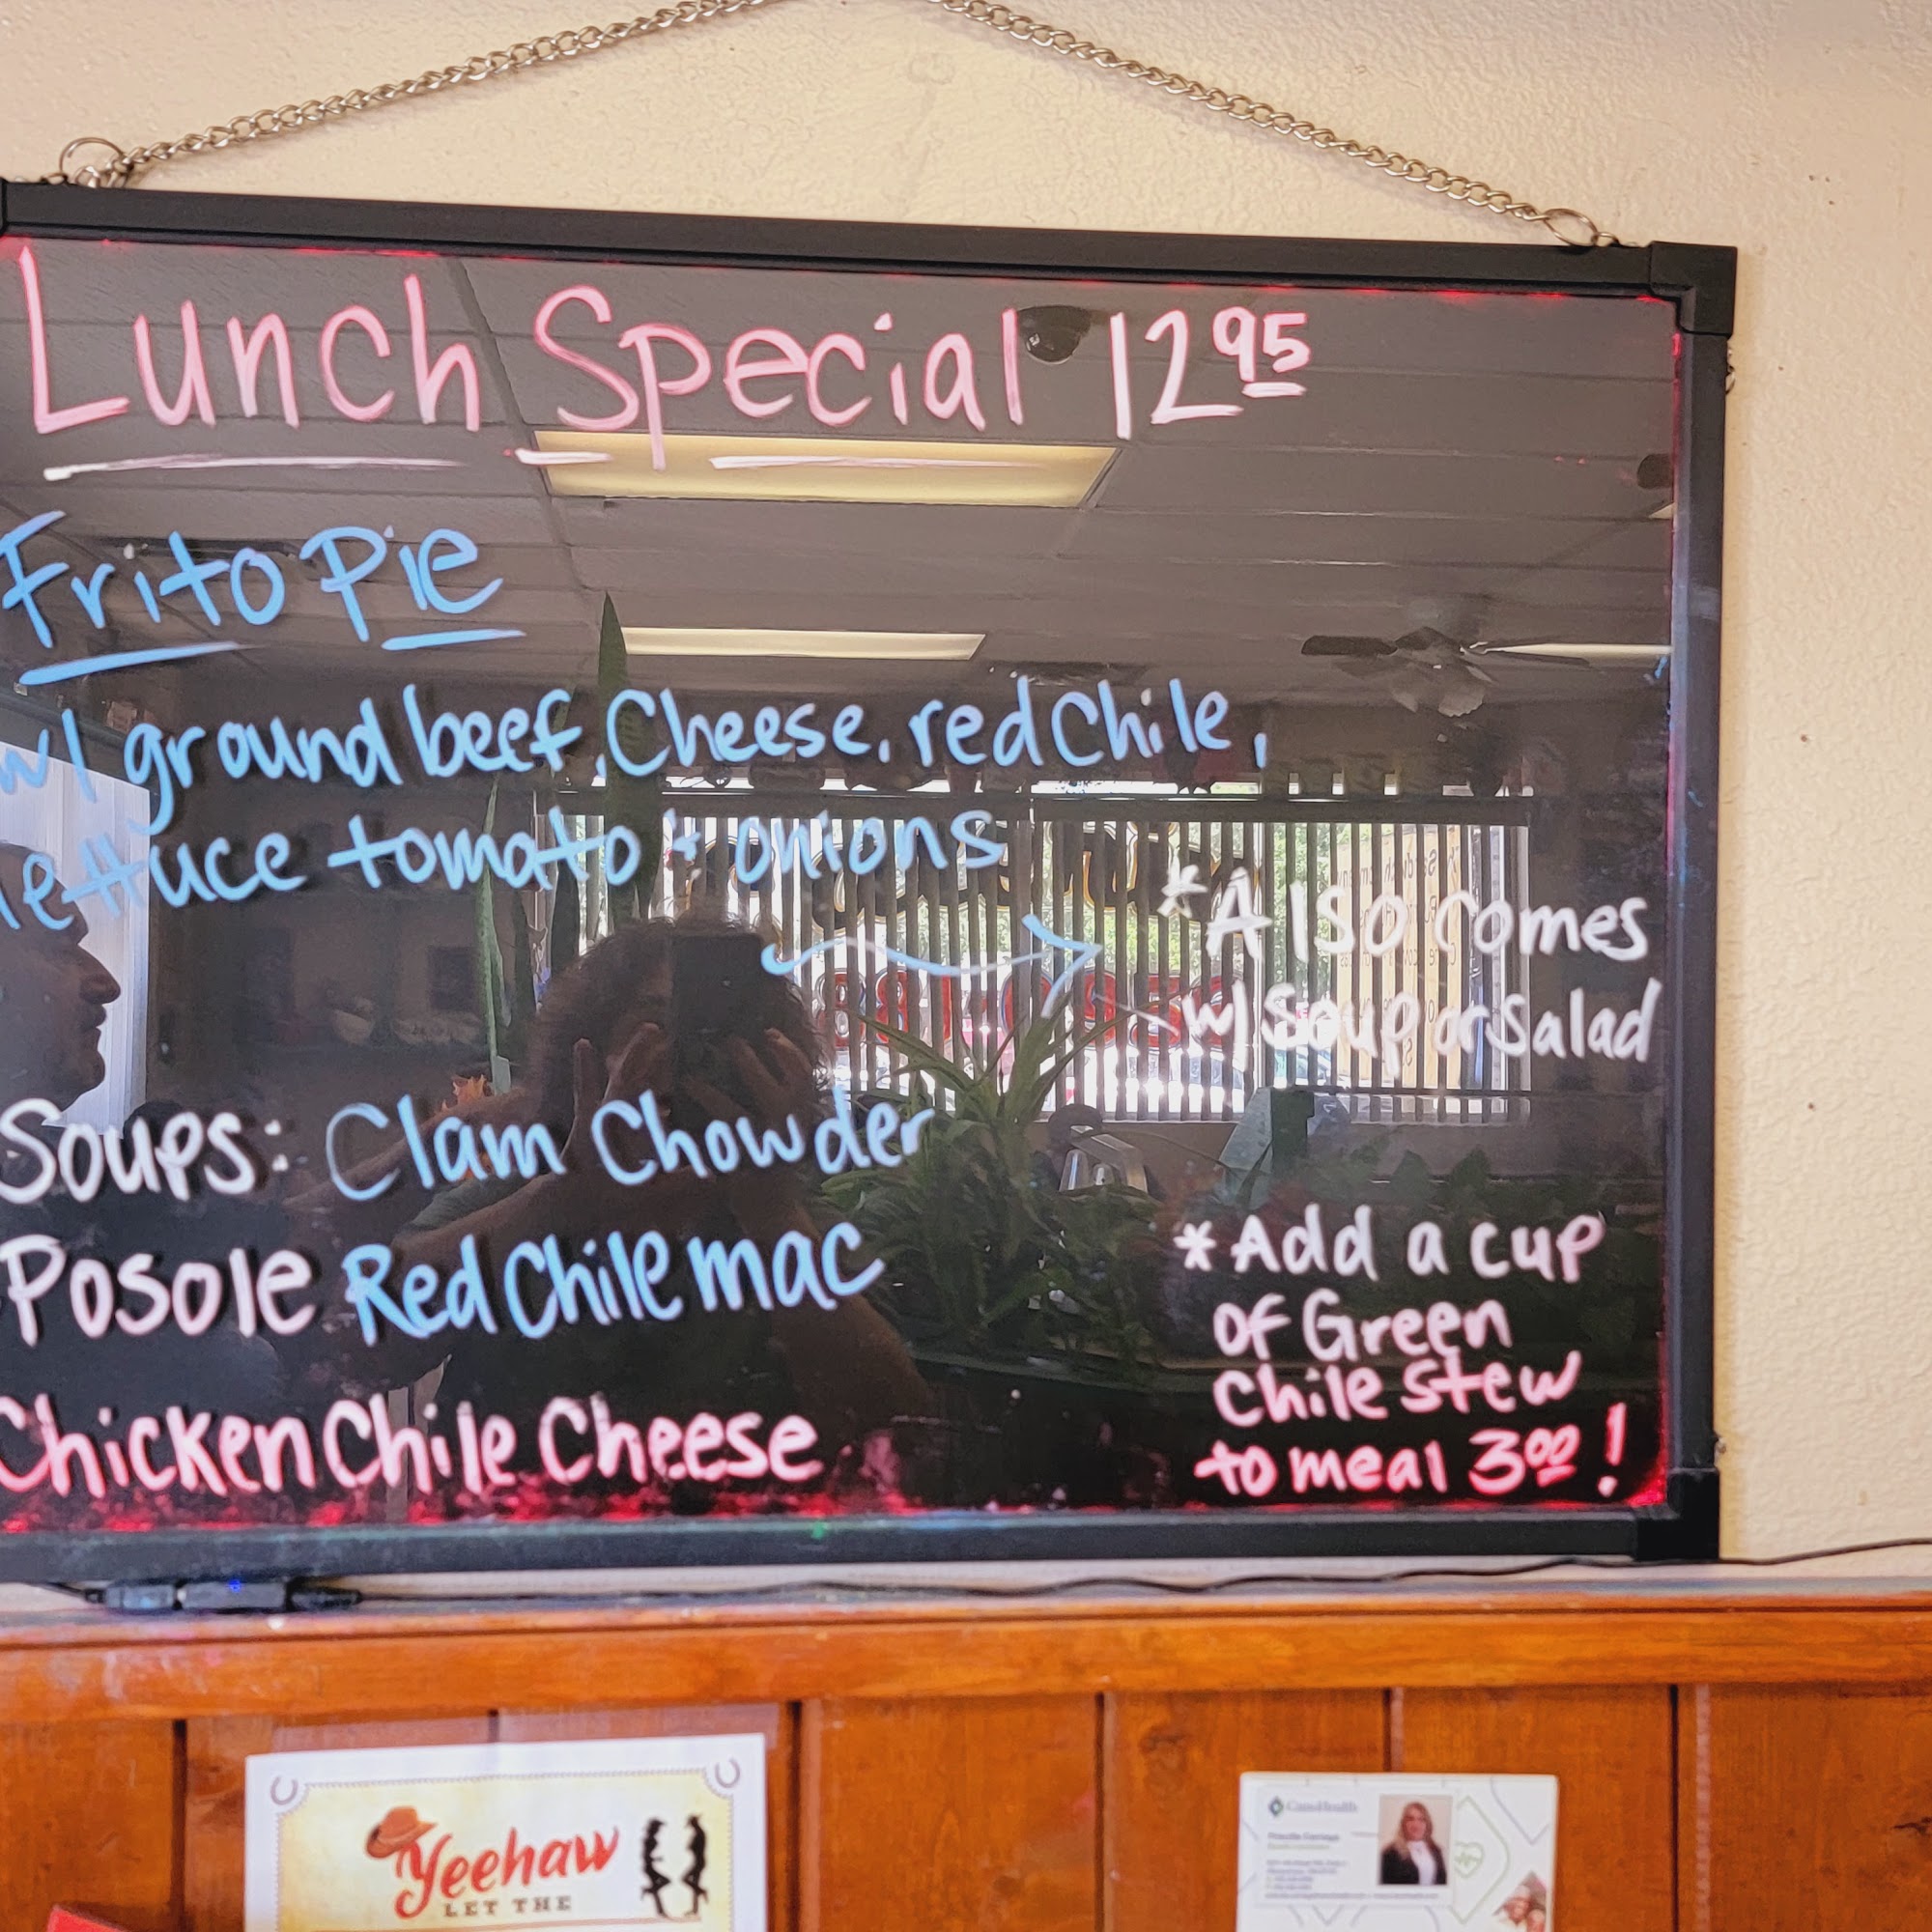 Lunch Special 12 95
Frito Pie
w/ ground beef, Cheese, red Chile,
lettuce tomato + onions
*Also comes
w/ Soup or Salad
Soups: Clam Chowder
Posole Red Chile mac
Chicken Chile Cheese
*Add a cup
of Green
Chile stew
to meal 3 00 !
Yeehaw
LET THE